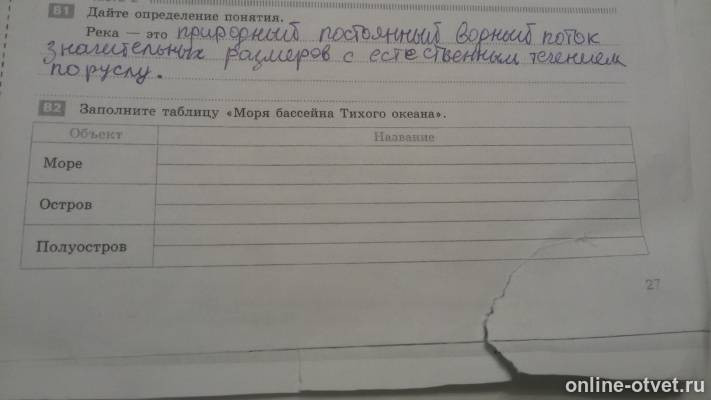 В1 Дайте определение понятия.
Река — это природный постоянный водный поток
значительных размеров с естественным течением
по руслу.
В2 Заполните таблицу «Моря бассейна Тихого океана».
Объект Название
Море
Остров
Полуостров
27
online-otvet.ru